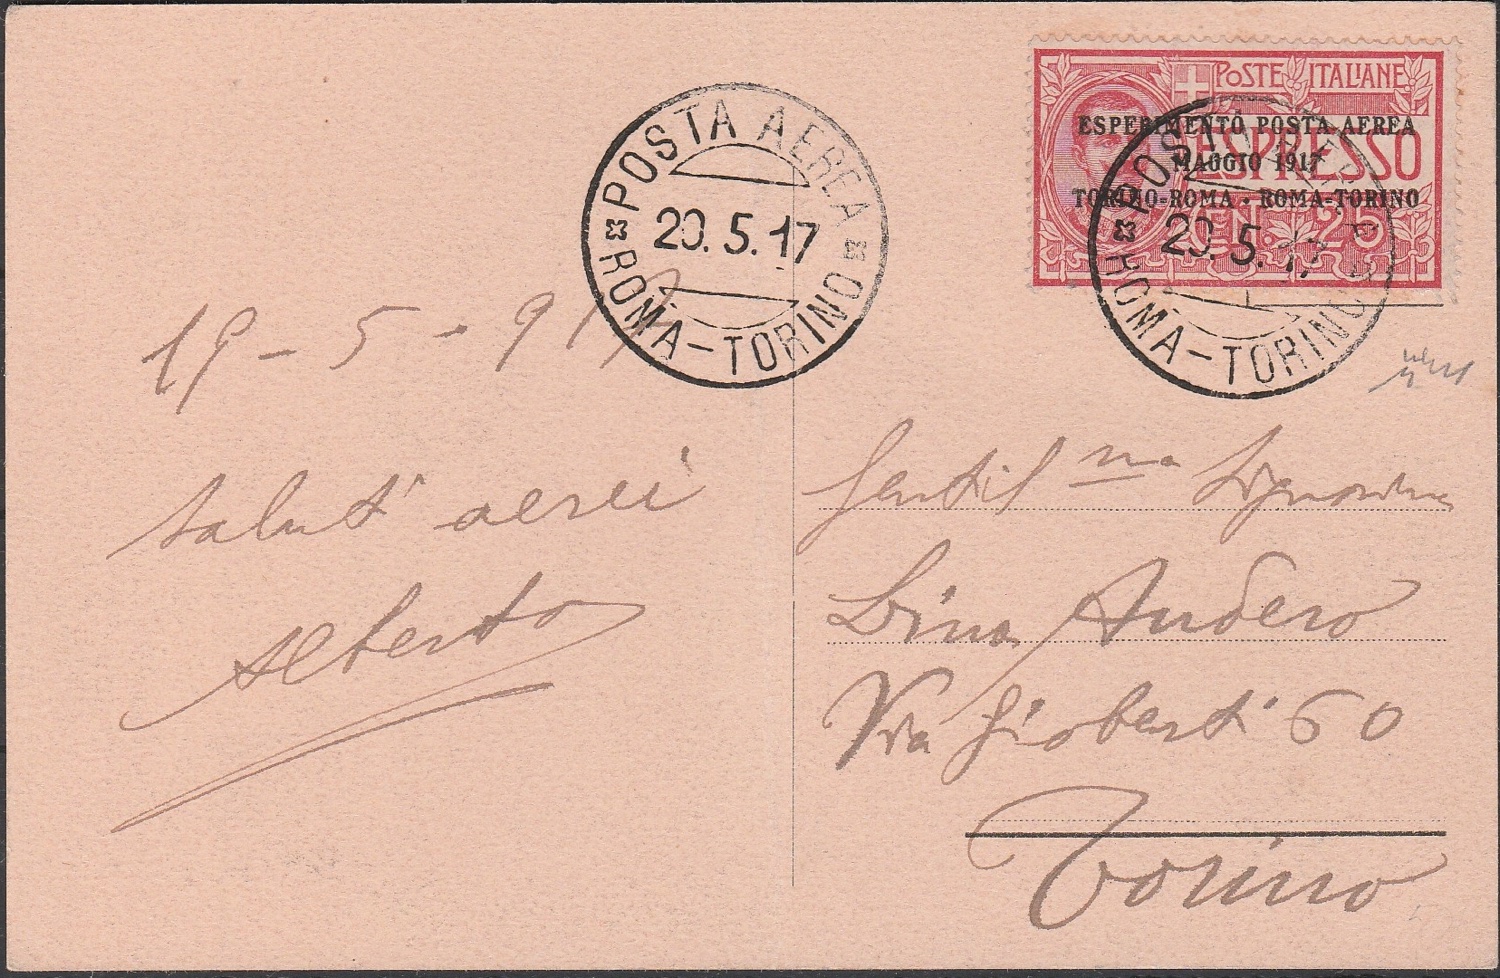 POSTE ITALIANE
ESPRESSO
CENT. 25
ESPERIMENTO POSTA AEREA
MAGGIO 1917
TORINO-ROMA · ROMA-TORINO
POSTA AEREA
20.5.17
ROMA-TORINO
POSTA AEREA
20.5.17
ROMA-TORINO
19-5-917
Saluti aerei
Alberto
Gentil ma Signorina
Bina Audero
Via Gioberti 60
Torino